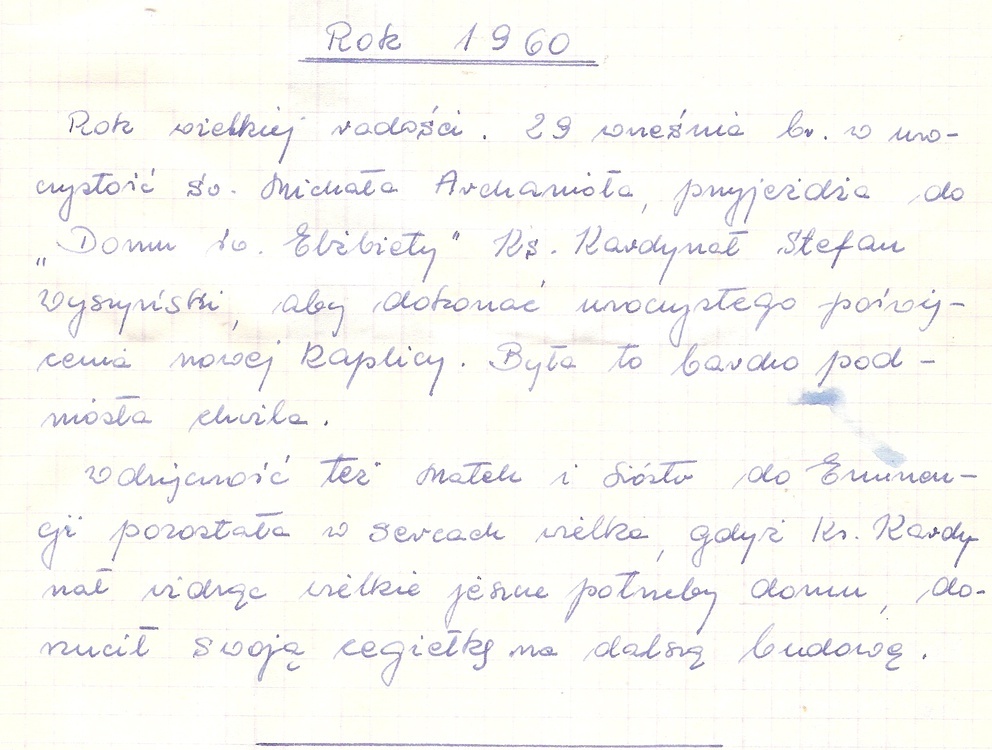 Rok 1960
Rok wielkiej radości. 29 września br. w uro-
czystość św. Michała Archanioła, przyjeżdża do
„Domu św. Elżbiety" Ks. Kardynał Stefan
Wyszyński, aby dokonać uroczystego poświę-
cenia nowej Kaplicy. Była to bardzo pod-
niosła chwila.
Wdzięczność też Matek i Sióstr do Eminen-
cji pozostała w sercach wielka, gdyż Ks. Kardy
nał widząc wielkie jeszcze potrzeby domu, do-
rzucił swoją cegiełkę na dalszą budowę.